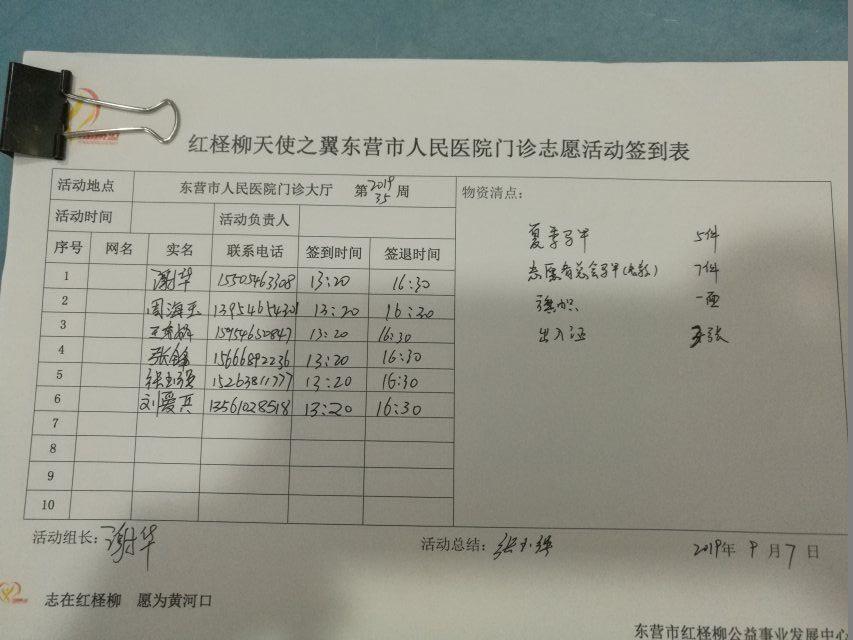 红柽柳天使之翼东营市人民医院门诊志愿活动签到表
活动地点 东营市人民医院门诊大厅 第2019 35周
物资清点：
活动时间 活动负责人
序号 网名 实名 联系电话 签到时间 签退时间
1 谢华 15505463308 13:20 16:30
2 周海玉 13954654301 13:20 16:30
3 15954650847 13:20 16:30
4 15666892236 13:20 16:30
5 张玉强 15263811777 13:20 16:30
6 刘爱兵 13561028518 13:20 16:30
7
8
9
10
夏季马甲 5件
志愿者总会马甲 7件
旗帜 一面
出入证 张
活动组长：谢华
活动总结：张玉强
2019年 9月7日
志在红柽柳 愿为黄河口
东营市红柽柳公益事业发展中心